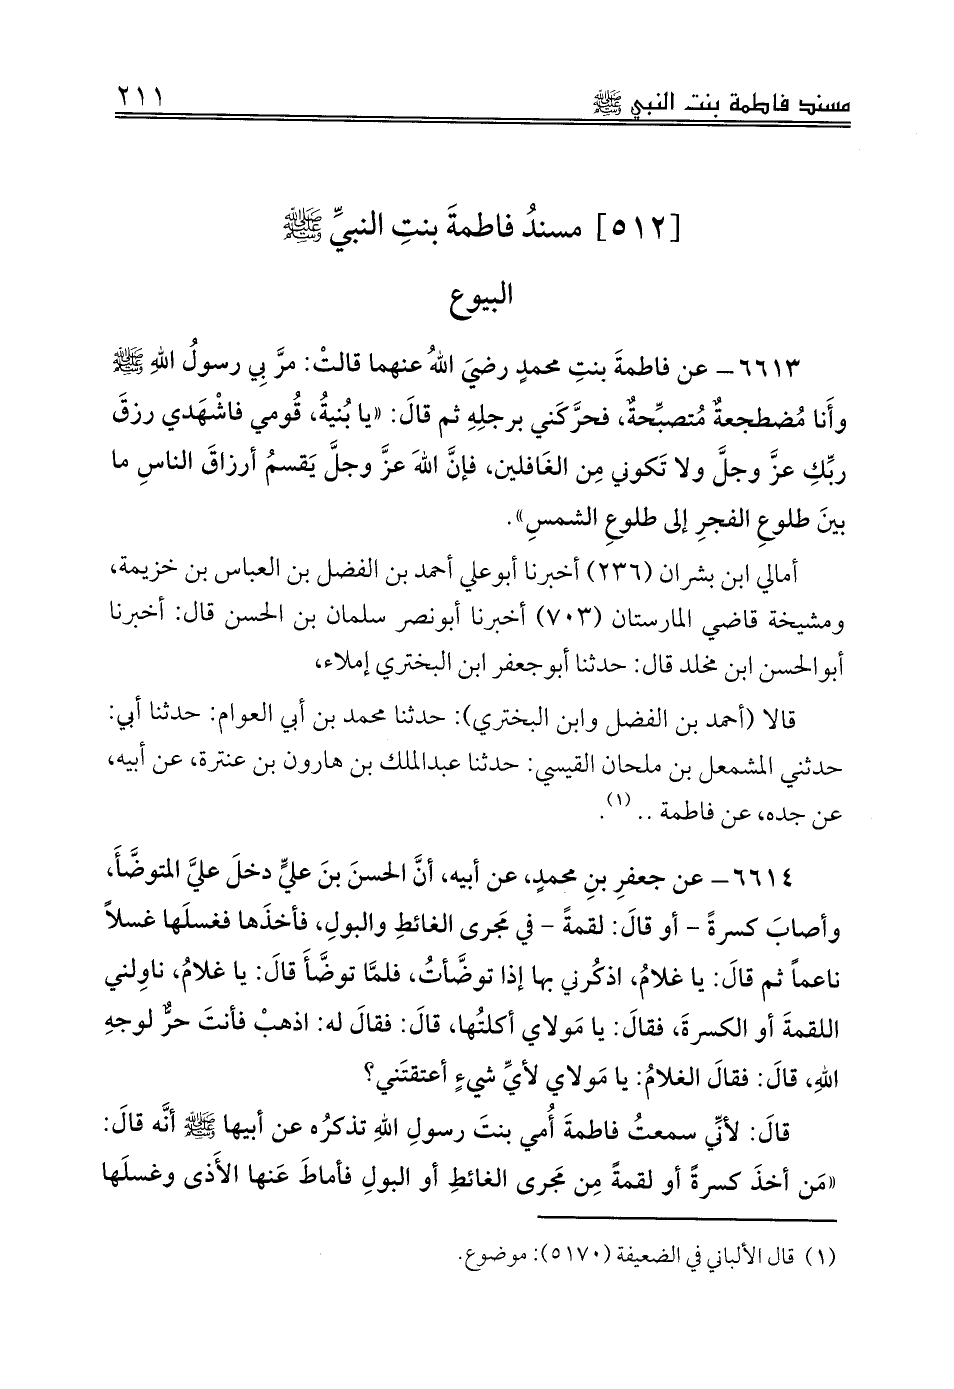 مسند فاطمة بنت النبي ﷺ ٢١١
[٥١٢] مسندُ فاطمةَ بنتِ النبيِّ ﷺ
البيوع
٦٦١٣ــ عن فاطمةَ بنتِ محمدٍ رضيَ اللهُ عنهما قالتْ: مرَّ بي رسولُ اللهِ ﷺ
وأَنا مُضطجعةٌ مُتصبِّحةٌ، فحرَّكَني برجلِهِ ثم قالَ: «يا بُنيةُ، قُومي فاشْهَدي رزقَ
ربِّكِ عزَّ وجلَّ ولا تَكوني مِن الغَافلين، فإنَّ اللهَ عزَّ وجلَّ يَقسمُ أرزاقَ الناسِ ما
بينَ طلوعِ الفجرِ إلى طلوعِ الشمسِ».
أمالي ابن بشران (٢٣٦) أخبرنا أبوعلي أحمد بن الفضل بن العباس بن خزيمة،
ومشيخة قاضي المارستان (٧٠٣) أخبرنا أبونصر سلمان بن الحسن قال: أخبرنا
أبوالحسن ابن مخلد قال: حدثنا أبوجعفر ابن البختري إملاء،
قالا (أحمد بن الفضل وابن البختري): حدثنا محمد بن أبي العوام: حدثنا أبي:
حدثني المشمعل بن ملحان القيسي: حدثنا عبدالملك بن هارون بن عنترة، عن أبيه،
عن جده، عن فاطمة .. (١).
٦٦١٤ــ عن جعفرِ بنِ محمدٍ، عن أبيه، أنَّ الحسنَ بنَ عليٍّ دخلَ عليَّ المتوضَّأَ،
وأصابَ كسرةً - أو قالَ: لقمةً - في مَجرى الغائطِ والبولِ، فأخذَها فغسلَها غسلاً
ناعماً ثم قالَ: يا غلامُ، اذكُرني بها إذا توضَّأتُ، فلمَّا توضَّأَ قالَ: يا غلامُ، ناوِلني
اللقمةَ أو الكسرةَ، فقالَ: يا مَولاي أكلتُها، قالَ: فقالَ له: اذهبْ فأنتَ حرٌّ لوجهِ
اللهِ، قالَ: فقالَ الغلامُ: يا مَولاي لأيِّ شيءٍ أعتقتَني؟
قالَ: لأنِّي سمعتُ فاطمةَ أُمي بنتَ رسولِ اللهِ تذكرُه عن أبيها ﷺ أنَّه قالَ:
«مَن أخذَ كسرةً أو لقمةً مِن مَجرى الغائطِ أو البولِ فأماطَ عَنها الأَذى وغسلَها
(١) قال الألباني في الضعيفة (٥١٧٠): موضوع.